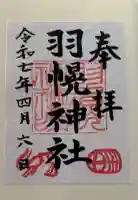 奉拝
羽幌神社
令和七年四月六日